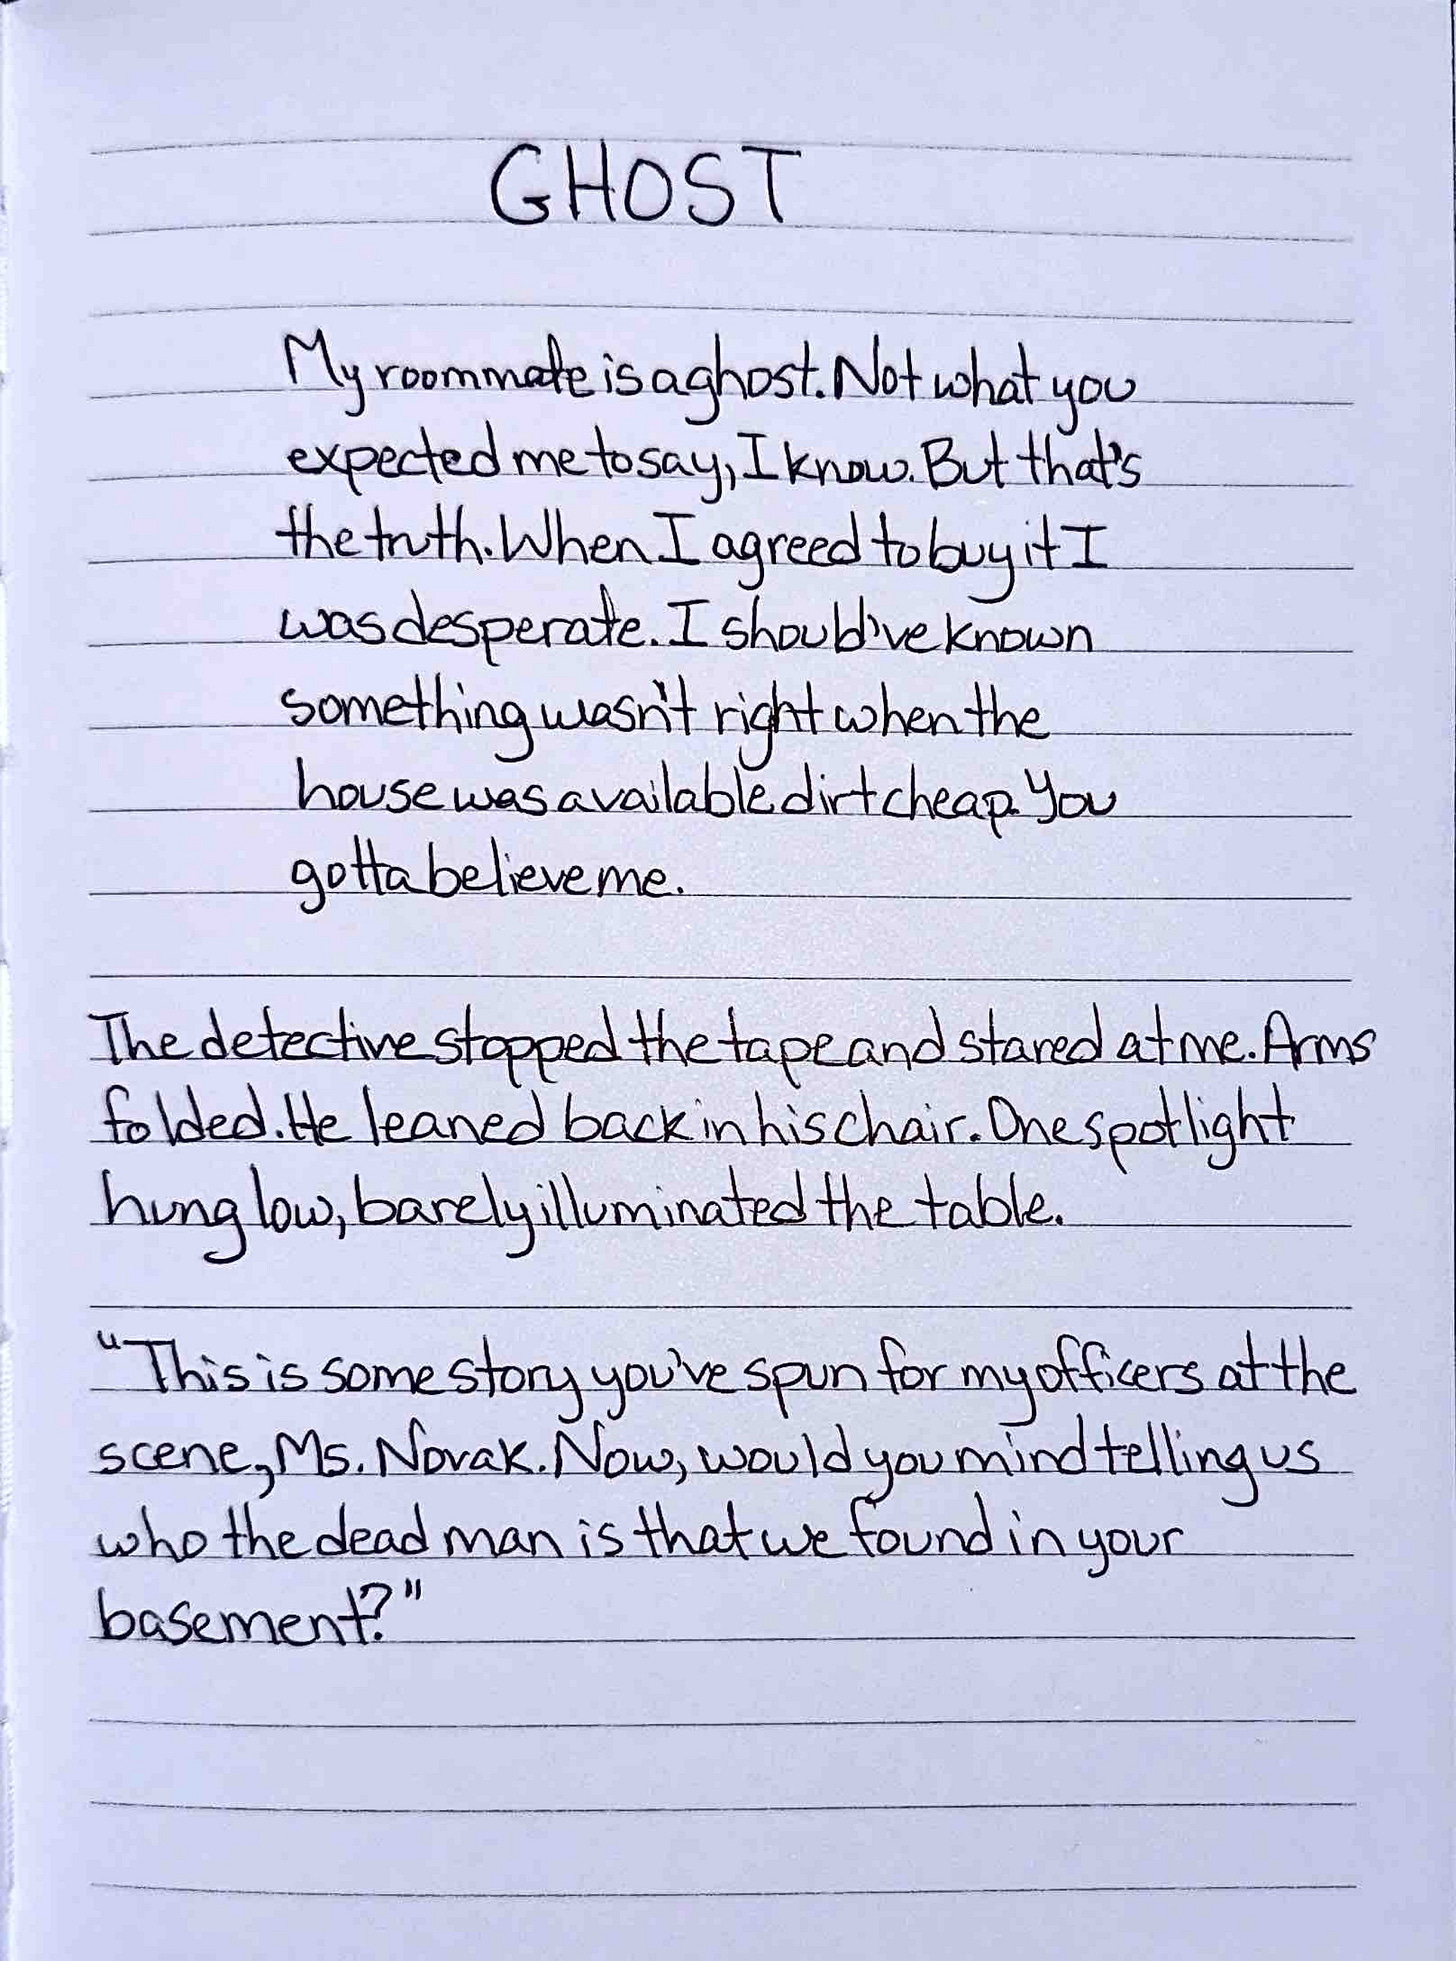 GHOST
My roommate is a ghost. Not what you
expected me to say, I know. But that's
the truth. When I agreed to buy it I
was desperate. I should've known
something wasn't right when the
house was available dirt cheap. You
gotta believe me.
The detective stopped the tape and stared at me. Arms
folded. He leaned back in his chair. One spotlight
hung low, barely illuminated the table.
"This is some story you've spun for my officers at the
scene, Ms. Novak. Now, would you mind telling us
who the dead man is that we found in your
basement?"